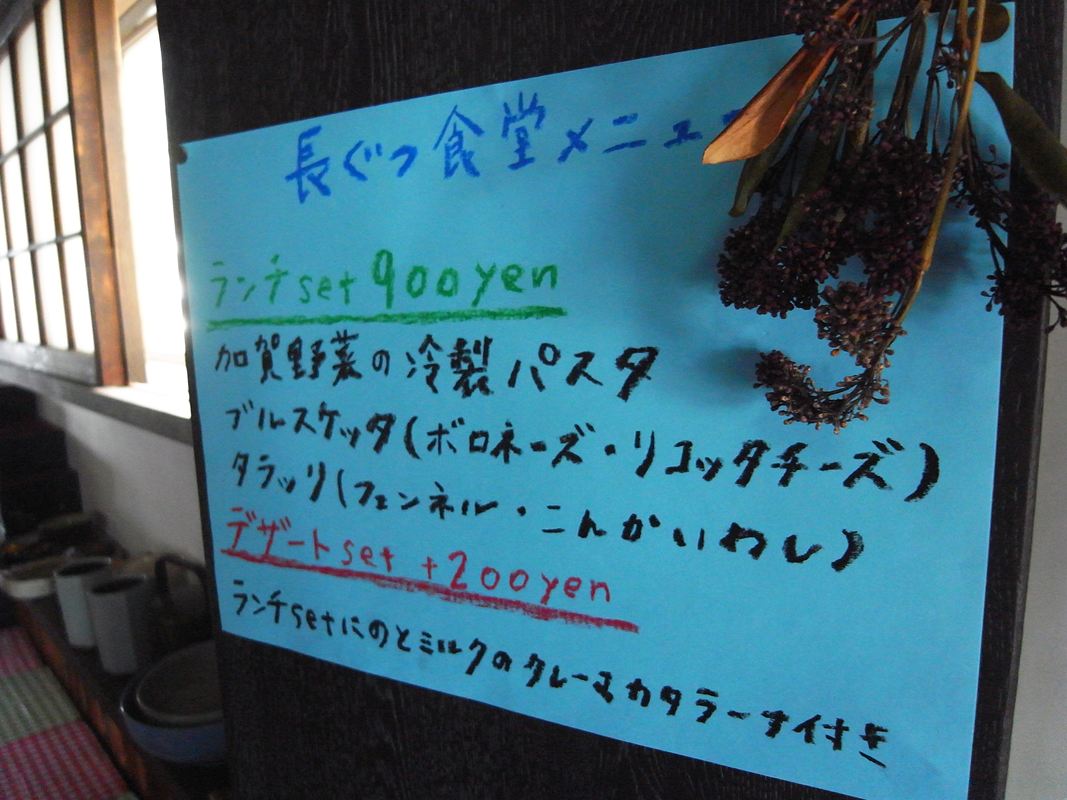 長ぐつ食堂メニュー
ランチset 900yen
加賀野菜の冷製パスタ
ブルスケッタ(ボロネーズ・リコッタチーズ)
タラッリ(フェンネル・こんかいわし)
デザートset +200yen
ランチsetにのとミルクのクレーマカタラーナ付き